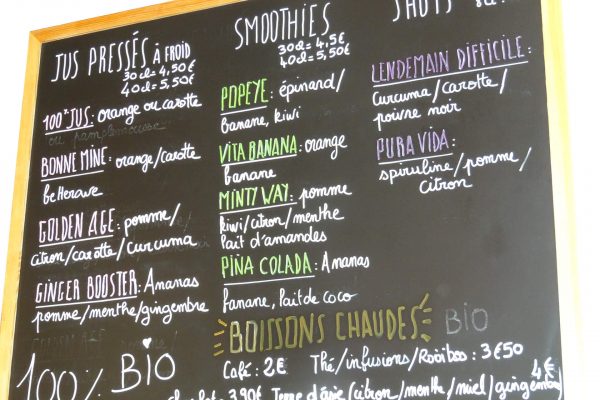 JUS PRESSÉS À FROID
30cl = 4,50€
40cl = 5,50€
100% JUS: orange ou carotte
ou pamplemousse
BONNE MINE: orange/carotte
betterave
GOLDEN AGE: pomme/
citron/carotte/curcuma
GINGER BOOSTER: Ananas
pomme/menthe/gingembre
100% BIO
SMOOTHIES
30cl = 4,5€
40cl = 5,50€
POPEYE: épinard/
banane, kiwi
VITA BANANA: orange
banane
MINTY WAY: pomme
kiwi/citron/menthe
lait d'amandes
PINA COLADA: Ananas
banane, lait de coco
SHOTS
LENDEMAIN DIFFICILE:
curcuma/carotte/
poivre noir
PURA VIDA:
spiruline/pomme/
citron
BOISSONS CHAUDES BIO
Café: 2€ Thé/infusions/Rooibos: 3€50
3,90€ (citron/menthe/miel/gingembre) 4€